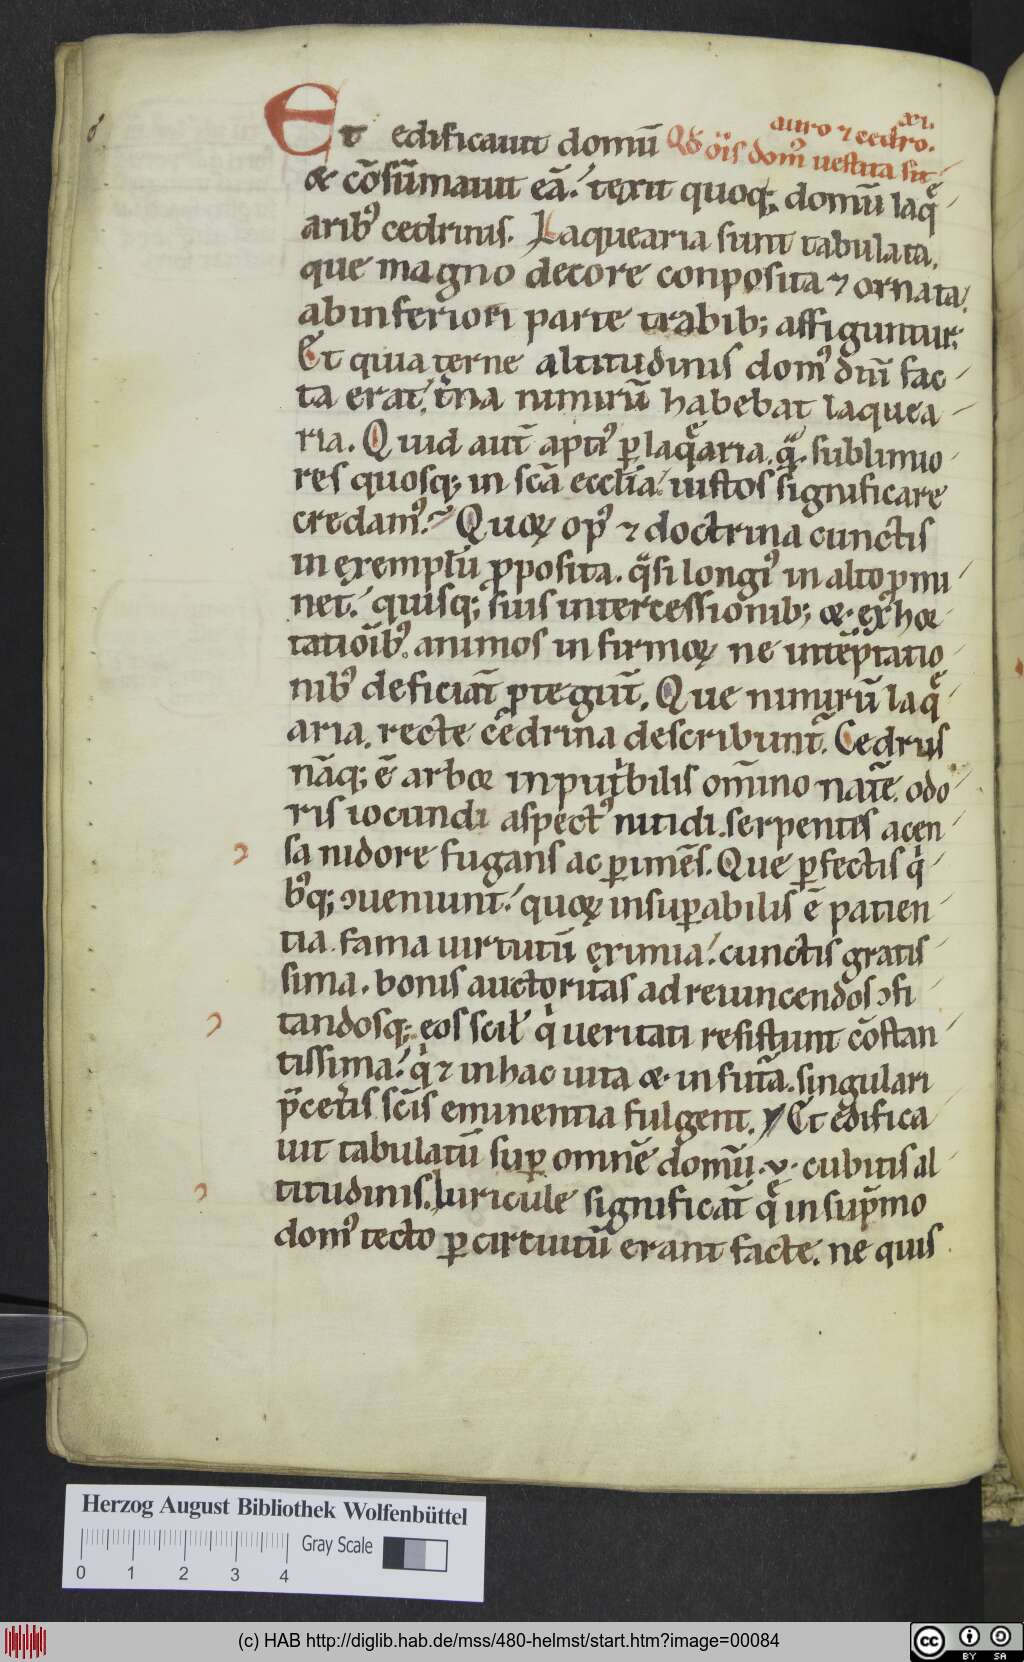 xi.
auro ⁊ cedro.
Et edificauit domū Qđ oı̄s domꝰ uestita sit
& cōsūmauit eā. texit quoq; domū laq̄
aribꝰ cedrinis. Laquearia sunt tabulata.
que magno decore conposita ⁊ ornata.
ab inferiori parte trabib; affiguntur.
Et quia terne altitudinis domꝰ dn̄i fac
ta erat. tⁱna nimirū habebat laquea
ria. Quid aut̄ aptiꝰ ꝑ laq̄aria. q̄ sublimio
res quosq; in sc̄a eccl̄ia iustos significare
credamꝰ? Quoꝝ opꝰ ⁊ doctrina cunctis
in exemplū ꝓposita. qͣsi longiꝰ in alto ꝓmi
net. quisq; suis intercessionib; & exhor
tatioı̄bꝰ. animos infirmoꝝ ne in tēptatio
nibꝰ deficiāt ꝓtegūt. Que nimirū laq̄
aria. recte cedrina describunt᷑. Cedrus
nāq; ē arbor inputⁱbilis om̄ino nat᷑e. odo
ris iocundi aspectꝰ nitidi. serpentes acen
sa nidore fugans ac ꝑimēs. Que ꝑfectis qⁱ
bꝰq; ↄueniunt. quoꝝ insuꝑabilis ē patien
tia. fama uirtutū eximia. cunctis gratis
sima. bonis auctoritas ad reuincendos ↄfu
tandosq; eos scił qⁱ ueritati resistunt cōstan
tissima. qⁱ ⁊ in hac uita & in fut᷑a. singulari
p̄ cetⁱis sc̄is eminentia fulgent. Et edifica
uit tabulatū suꝑ omnē domū .v. cubitis al
titudinis. Luricule significāt᷑ q̄ in sup̄mo
domꝰ tecto ꝑ circuitū erant facte. ne quis
Herzog August Bibliothek Wolfenbüttel
Gray Scale
0 1 2 3 4
(c) HAB http://diglib.hab.de/mss/480-helmst/start.htm?image=00084
cc BY SA